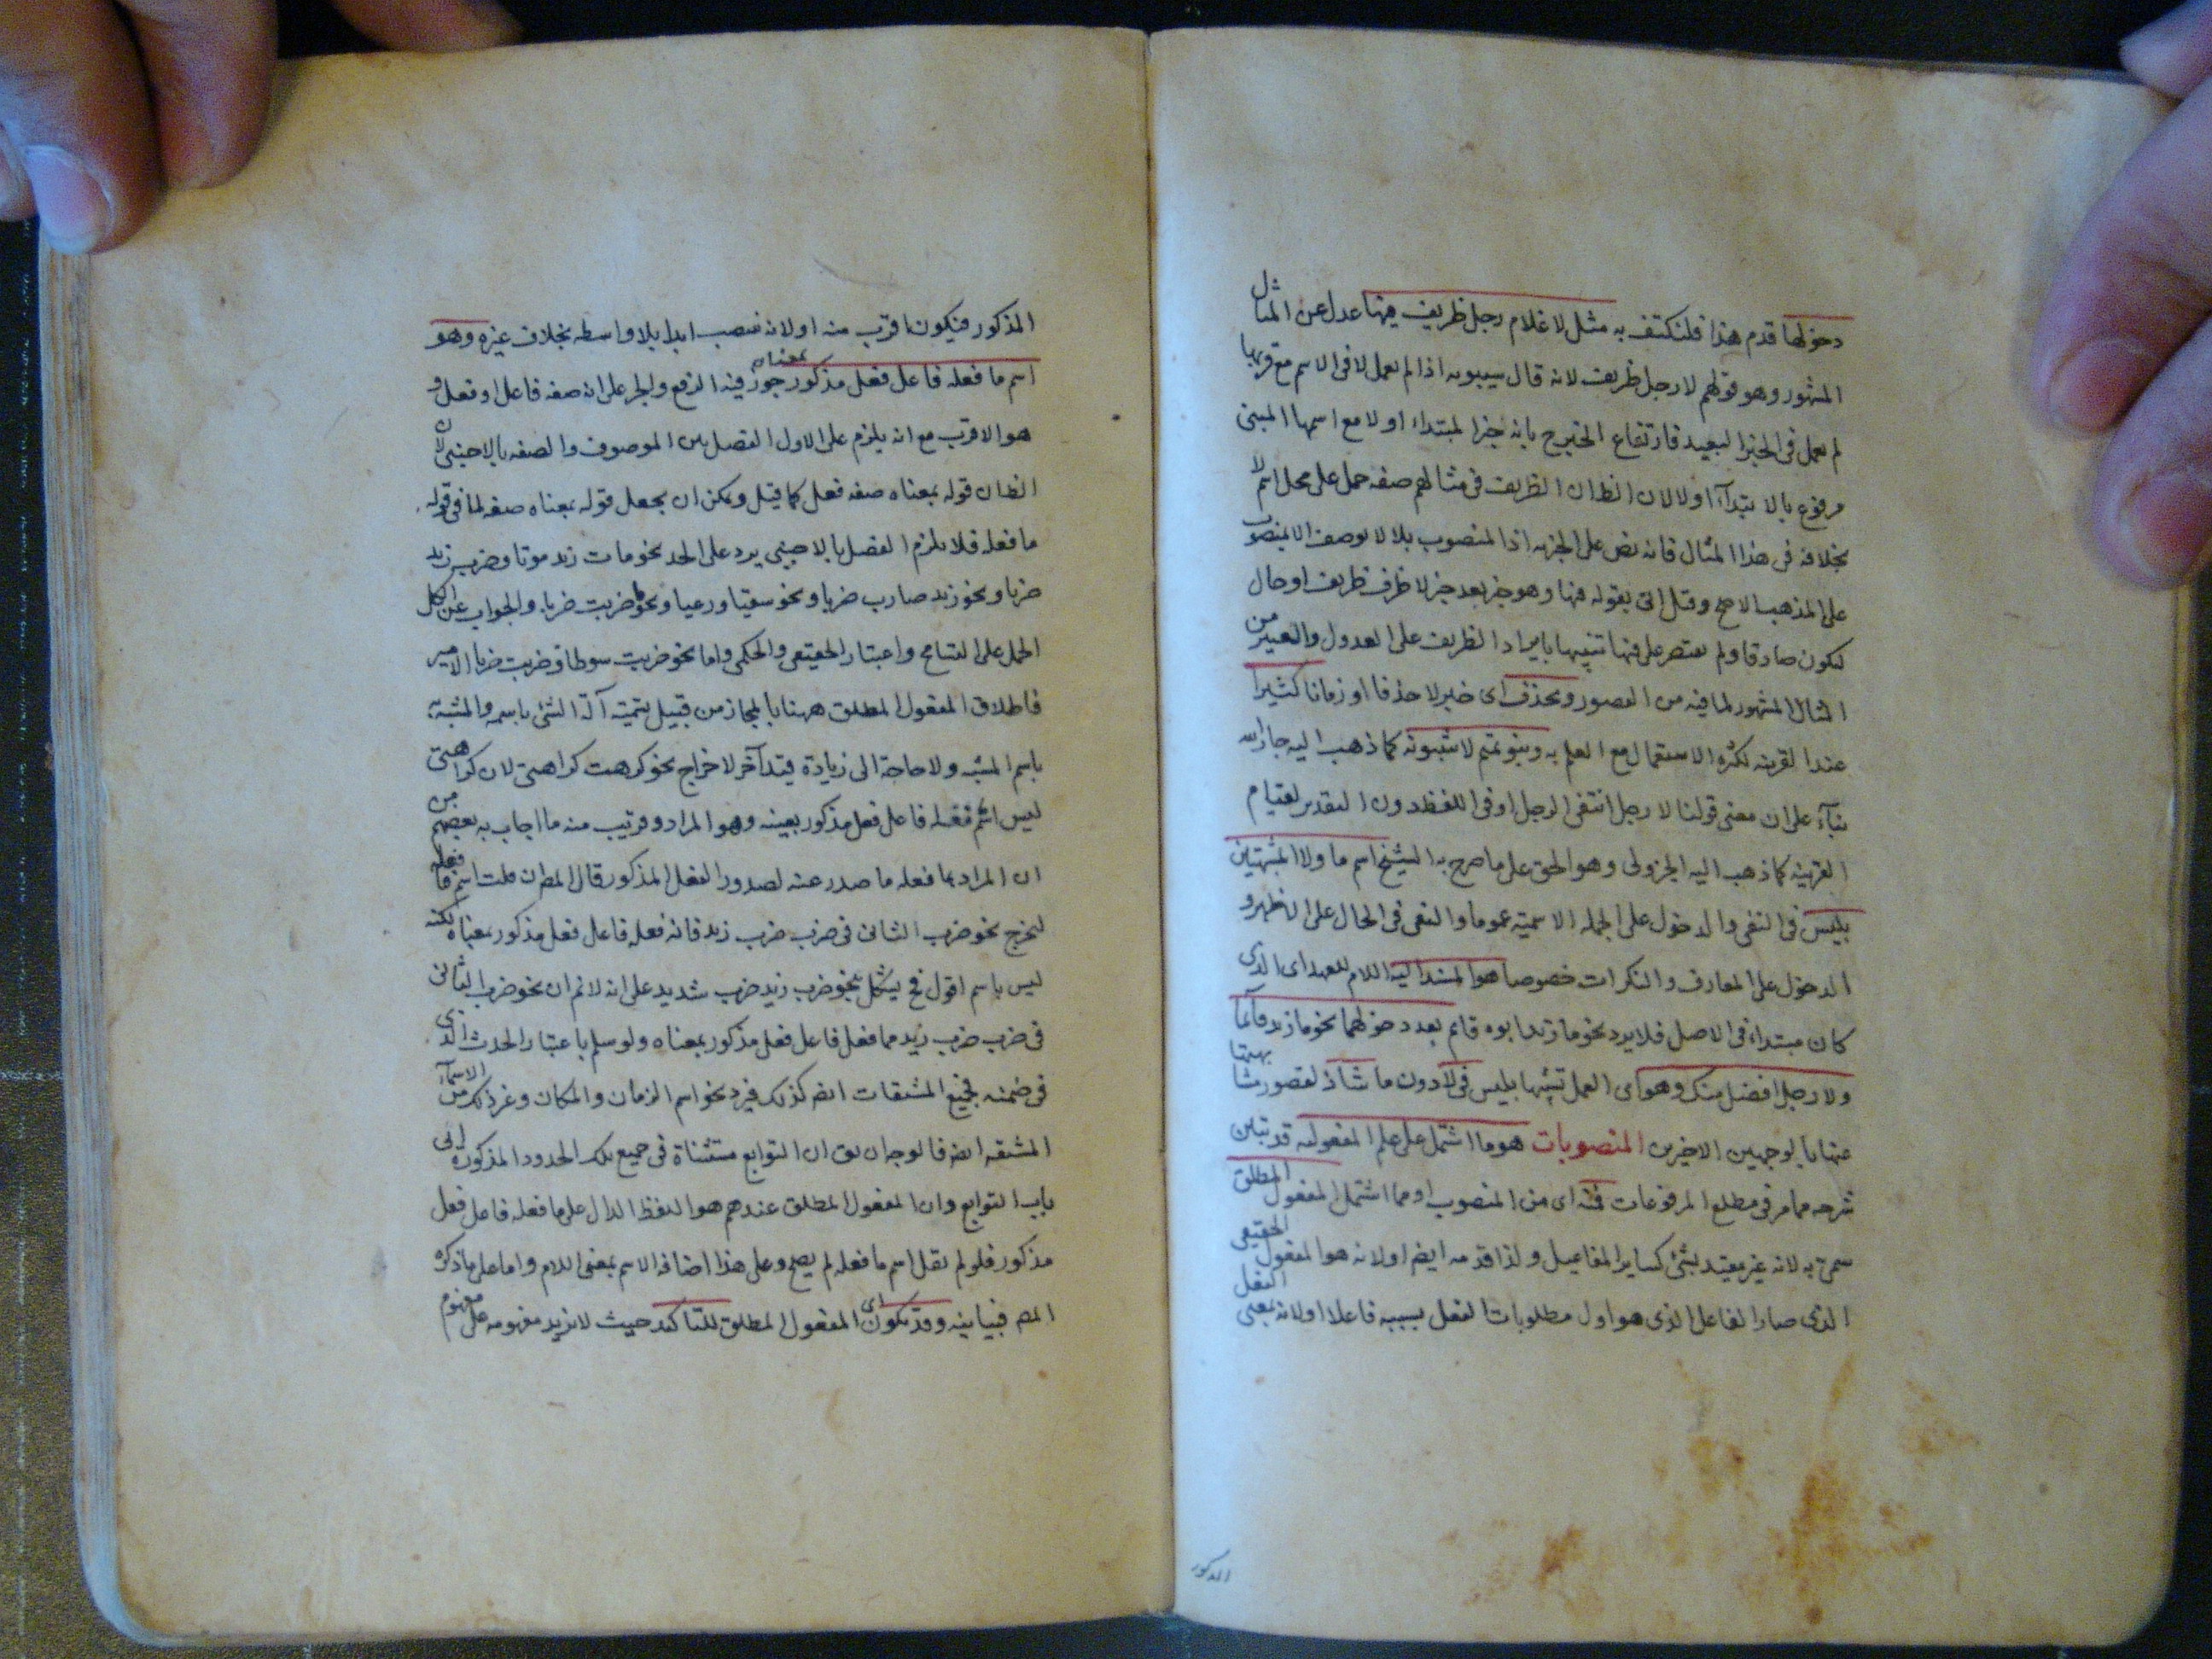 دخولها قدم هذا فلنكتف به مثل لا غلام رجل ظريف فيها عدل عن المثال
المشهور وهو قولهم لا رجل ظريف لانه قال سيبويه اذا لم يعمل لا فى الاسم مع قربها
لم يعمل فى الخبر البعيد فارتفاع الخبر ح بانه خبر المبتداء او لا مع اسمها المبنى
مرفوع بالابتداء او لا لان الظ ان الظريف فى مثالهم صفه حمل على محل اسم لا
بخلافه فى هذا المثال فانه نص على الخبريه اذ المنصوب بلا لا يوصف الا بمنصوب
على المذهب الاصح وقيل اتى بقوله فيها وهو خبر بعد خبر لا ظرف ظريف او حال
ليكون صادقا ولم يقتصر على فيها تنبيها بايراد الظريف على العدول والتغيير من
المثال المشهور لما فيه من القصور ويحذف اى خبر لا حذفا او زمانا كثيرا
عند القرينه لكثره الاستعمال مع العلم به وبنو تميم لا يثبتونه كما ذهب اليه جار الله
بنآء على ان معنى قولنا لا رجل انتفى الرجل او فى اللفظ دون التقدير لقيام
القرينه كما ذهب اليه الجزولى وهو الحق على ما صرح به الشيخ اسم ما ولا المشبهتين
بليس فى النفى والدخول على الجمله الاسميه عموما والنفى فى الحال على الاظهر و
الدخول على المعارف والنكرات خصوصا هو المسند اليه اللام للعهد اى الذى
كان مبتداء فى الاصل فلا يرد نحو ما زيد ابوه قايم بعد دخولهما نحو ما زيد قآئما
ولا رجل افضل منك وهو اى العمل تشبيها بليس فى لا دون ما شاذ لقصور مشابهتها
عنها بالوجهين الاخيرين المنصوبات هو ما اشتمل على علم المفعوليه قد تبين
شرحه مما مر فى مطلع المرفوعات فمنه اى من المنصوب او مما اشتمل المفعول المطلق
سمى به لانه غير مقيد بشئ كساير المفاعيل ولذا قدمه ايضم او لانه هو المفعول الحقيقى
الذى صار الفاعل الذى هو اول مطلوبات الفعل بسببه فاعلا او لانه بمعنى الفعل
المذكور
المذكور فيكون اقرب منه او لانه ينصب ابدا بلا واسطه بخلاف غيره وهو
اسم ما فعله فاعل فعل مذكور بمعناه جوز فيه الرفع والجر على انه صفه فاعل او فعل و
هو الاقرب مع انه يلزم على الاول الفصل بين الموصوف والصفه بالاجنبى لان
الظ ان قوله بمعناه صفه فعل كما قيل ويمكن ان يجعل قوله بمعناه صفه لما فى قوله
ما فعله فلا يلزم الفصل بالاجنبى يرد على الحد نحو مات زيد موتا وضرب زيد
ضربا ونحو زيد ضارب ضربا ونحو سقيا ورعيا ونحو ما ضربت ضربا والجواب عن الكل
الحمل على التسامح واعتبار الحقيقى والحكمى واما نحو ضربت سوطا وضربت ضرب الامير
فاطلاق المفعول المطلق ههنا بالمجاز من قبيل تسميته آلة الشئ باسمه والمشبه به
باسم المشبه ولا حاجة الى زيادة قيد آخر لاخراج نحو كرهت كراهتى لان كراهتى
ليس اسم ما فعله فاعل فعل مذكور بعينه وهو المراد وقريب منه ما اجاب به بعضهم من
ان المراد بما فعله ما صدر عنه لصدور الفعل المذكور قال المص ان قلت اسم ما فعله
ليخرج نحو ضرب الثانى فى ضرب ضرب زيد فانه فعله فاعل فعل مذكور بمعناه لكنه
ليس باسم اقول فح يشكل بنحو ضرب زيد ضرب شديد على انه لا نم ان نحو ضرب الثانى
فى ضرب ضرب زيد مما فعل فاعل فعل مذكور بمعناه ولو سلم باعتبار الحدث الذى
فى ضمنه فجميع المشتقات ايضم كذلك فيرد نحو اسم الزمان والمكان وغير ذلك من الاسمآء
المشتقه ايضم فالوجه ان يق ان التوابع مستثناة فى جميع تلك الحدود المذكوره الى
باب التوابع وان المفعول المطلق عندهم هو اللفظ الدال على ما فعله فاعل فعل
مذكور فلو لم يقل اسم ما فعله لم يصح وعلى هذا اضافه الاسم بمعنى اللام واما على ما ذكره
المص فبيانيه وقد يكون اى المفعول المطلق للتاكيد حيث لا يزيد مفهومه على مفهوم